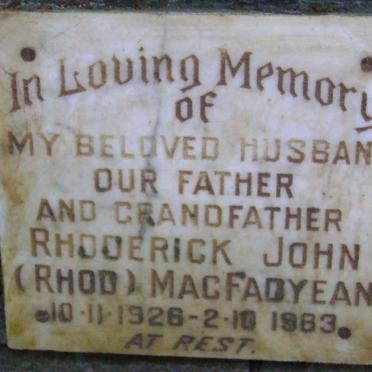 In Loving Memory
of
MY BELOVED HUSBAN
OUR FATHER
AND GRANDFATHER
RHODERICK JOHN
(RHOD) MACFADYEAN
10·11·1926-2·10 1983
AT REST.